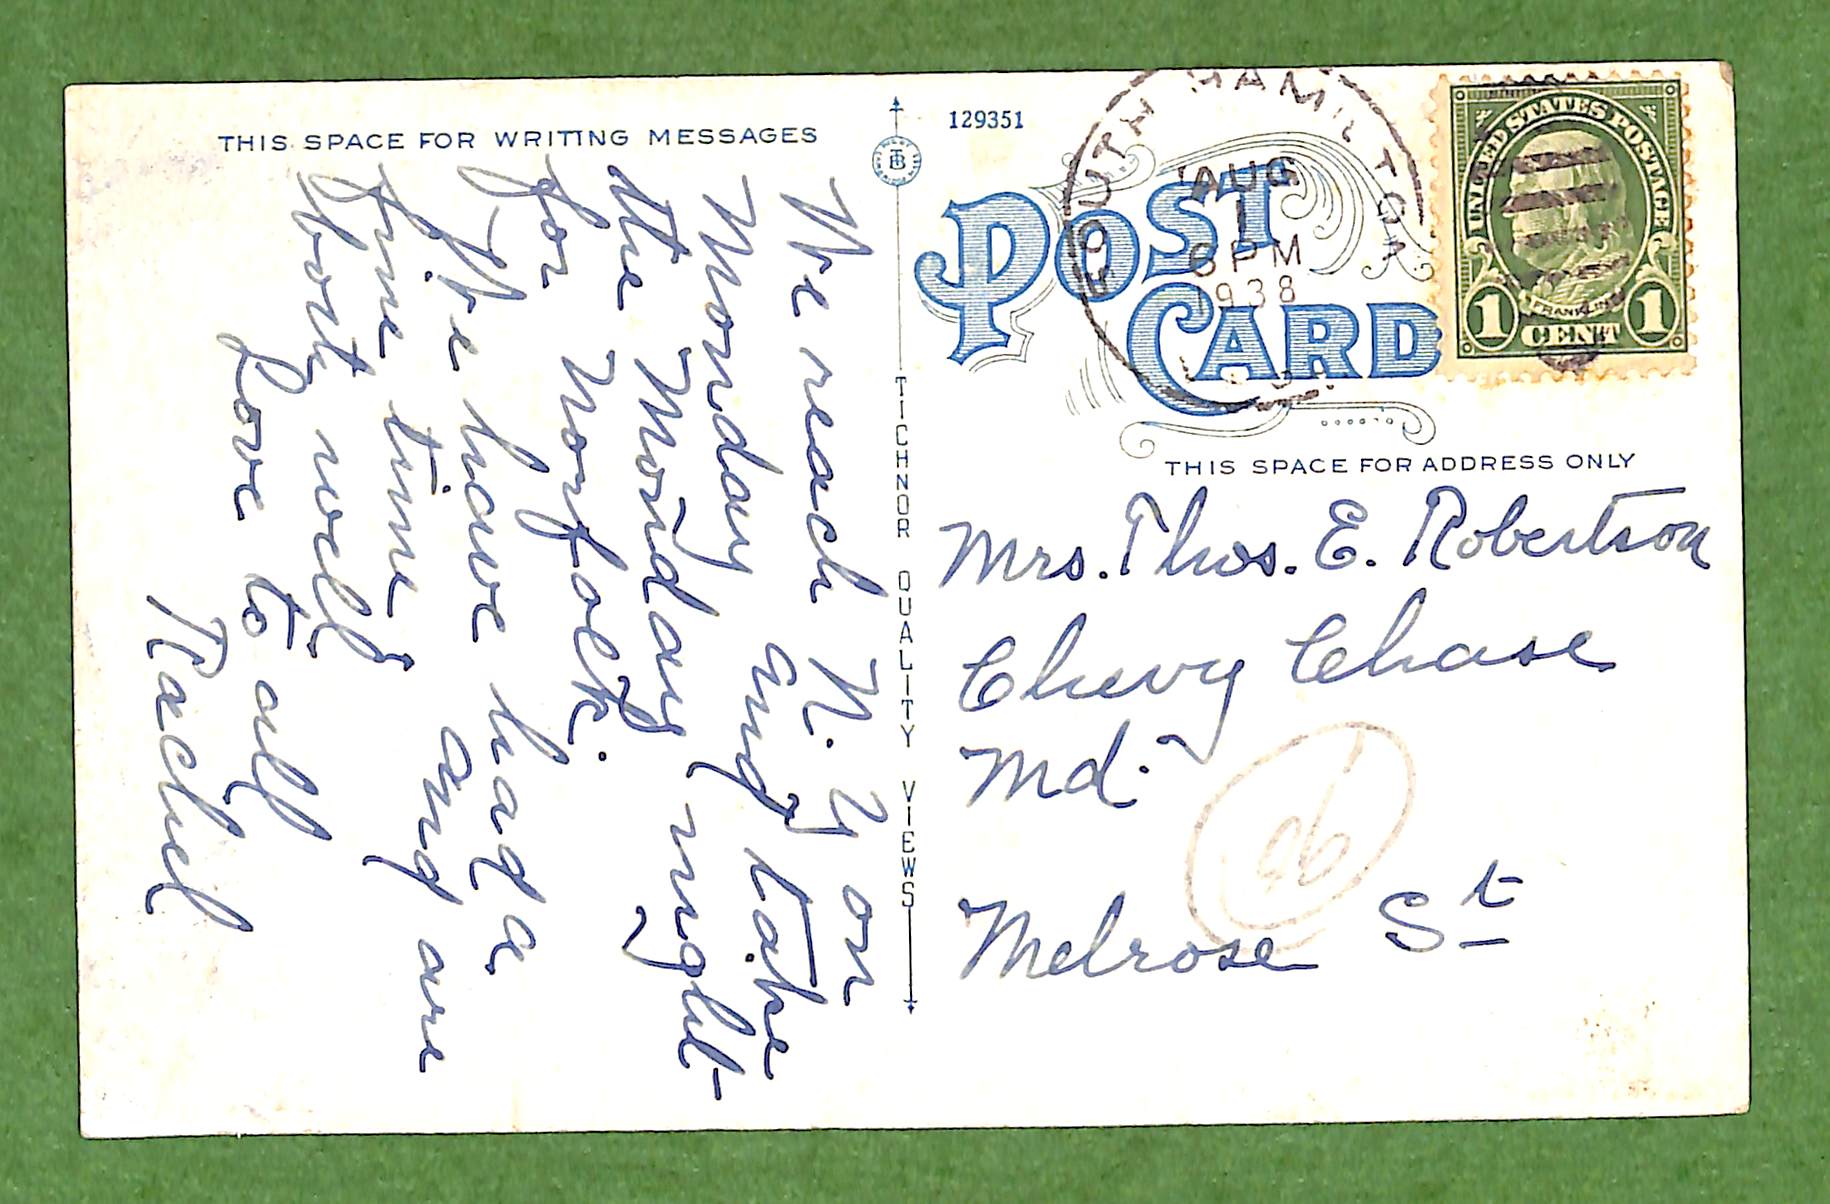 THIS SPACE FOR WRITING MESSAGES
We reach N. Y on
Monday and take
the Monday night
for Norfolk.
We have had a
fine time and are
both well.
Love to all
Rachel
TICHNOR QUALITY VIEWS
129351
POST CARD
SOUTH HAMILTON
AUG
1
6 PM
1938
UNITED STATES POSTAGE
FRANKLIN
1 CENT 1
THIS SPACE FOR ADDRESS ONLY
Mrs. Thos. E. Robertson
Chevy Chase
Md.
Melrose St